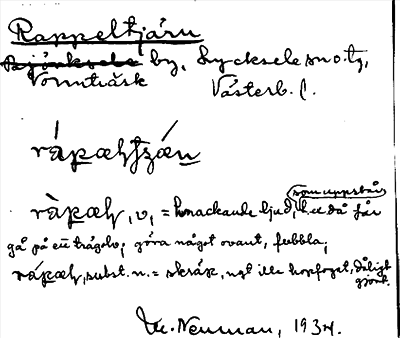 Rappeltjärn
Björksele by, Lycksele sn o. tg,
Vormträsk Västerb. l.
rápaltzǽn
ràpal, v, = knackande ljud, som uppstår t. ex då får
gå på ett trägolv; göra något ovant, fubbla;
rápal, subst. n. = skräp, ngt illa hopfogat, dåligt
gjort.
M. Neuman, 1934.